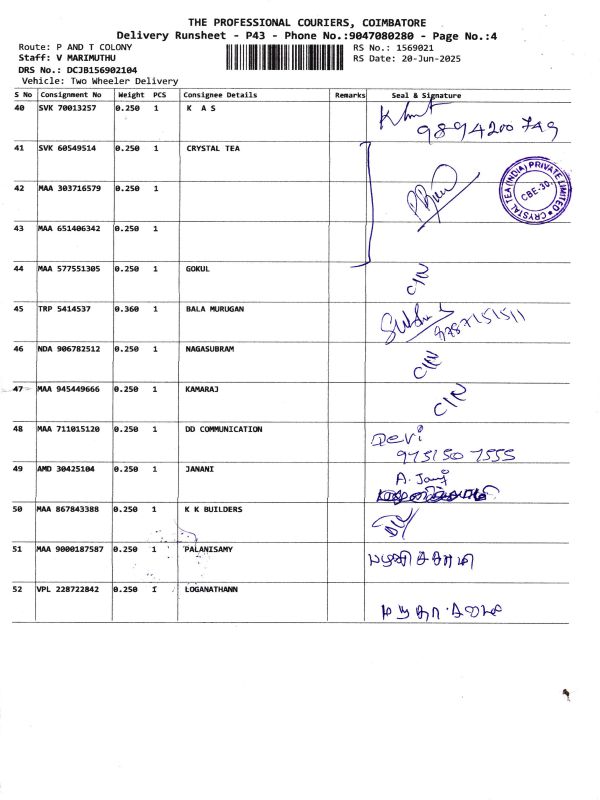 THE PROFESSIONAL COURIERS, COIMBATORE
Delivery Runsheet - P43 - Phone No.:9047080280 - Page No.:4
Route: P AND T COLONY RS No.: 1569021
Staff: V MARIMUTHU RS Date: 20-Jun-2025
DRS No.: DCJB156902104
Vehicle: Two Wheeler Delivery
S No Consignment No Weight PCS Consignee Details Remarks Seal & Signature
40 SVK 70013257 0.250 1 K A S
9894200749
41 SVK 60549514 0.250 1 CRYSTAL TEA
CRYSTAL TEA (INDIA) PRIVATE LIMITED
CBE-30.
42 MAA 303716579 0.250 1
43 MAA 651406342 0.250 1
44 MAA 577551305 0.250 1 GOKUL
45 TRP 5414537 0.360 1 BALA MURUGAN
9787151511
46 NDA 906782512 0.250 1 NAGASUBRAM
47 MAA 945449666 0.250 1 KAMARAJ
48 MAA 711015120 0.250 1 DD COMMUNICATION Devi
975150 7555
49 AMD 30425104 0.250 1 JANANI
50 MAA 867843388 0.250 1 K K BUILDERS
51 MAA 9000187587 0.250 1 PALANISAMY
52 VPL 228722842 0.250 1 LOGANATHANN